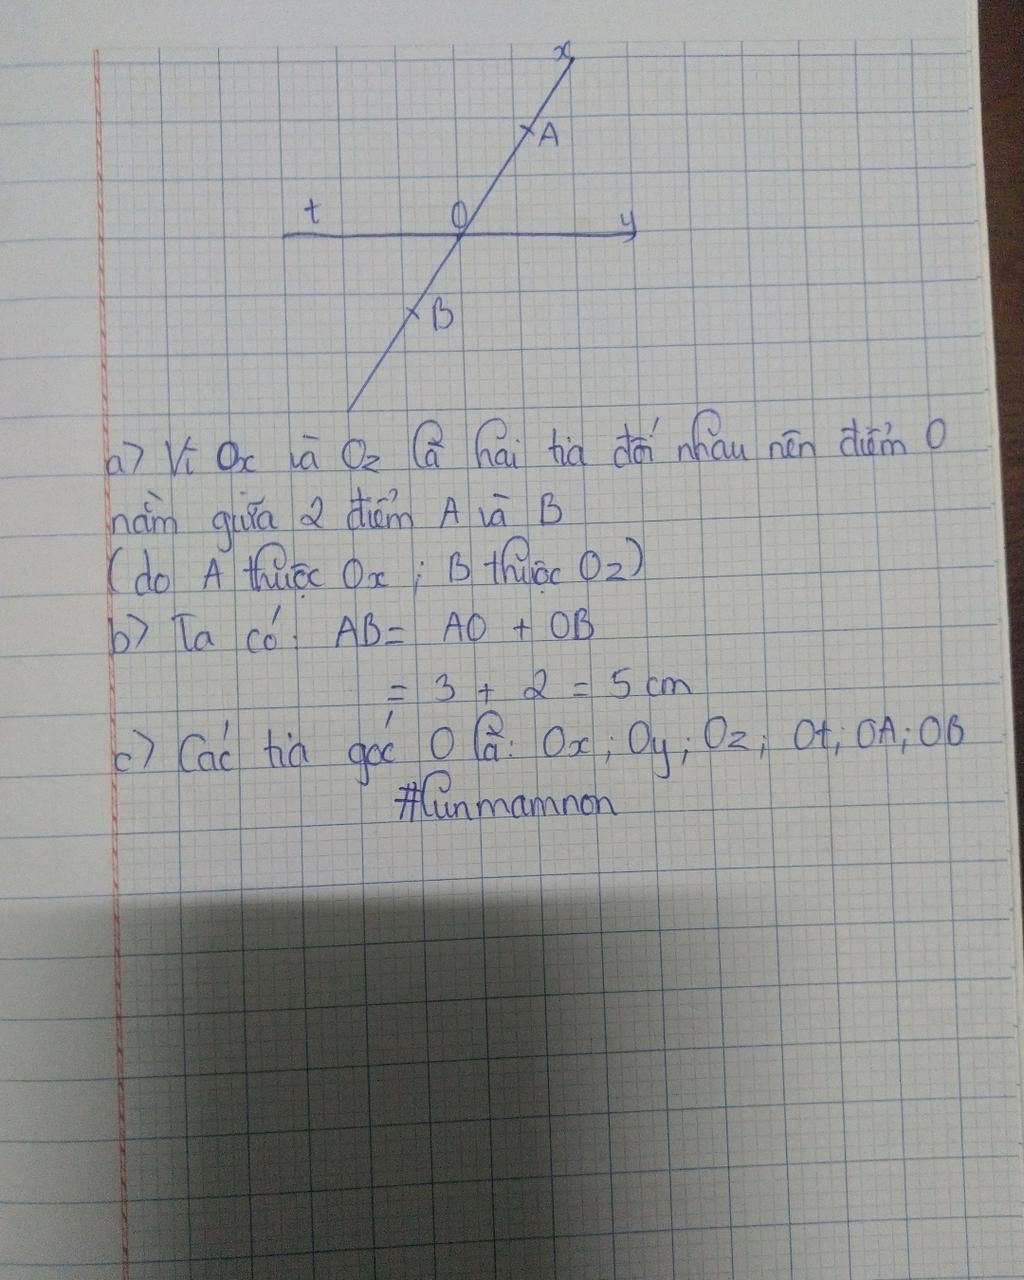 x
A
t
O
y
B
a) Vì Ox và Oz là hai tia đối nhau nên điểm O
nằm giữa 2 điểm A và B
(do A thuộc Ox ; B thuộc Oz)
b) Ta có: AB = AO + OB
= 3 + 2 = 5 cm
c) Các tia gốc O là: Ox; Oy; Oz; Ot; OA; OB
#Cunmamnon